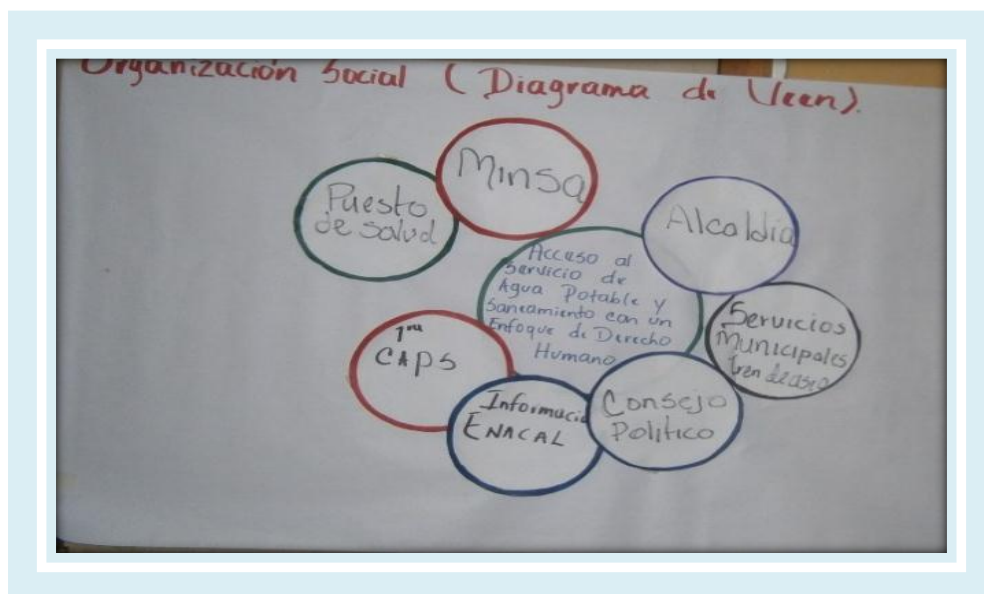 Organización Social (Diagrama de Veen).
Minsa
Puesto
de salud
Alcaldia
Acceso al
Servicio de
Agua Potable y
Saneamiento con un
Enfoque de Derecho
Humano
Servicios
Municipales
tren de aseo
1ra
CAPS
Informació
ENACAL
Consejo
Politico